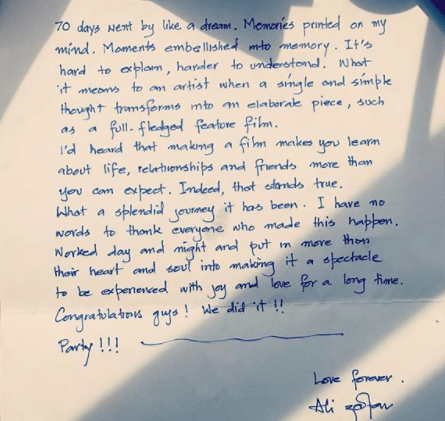 70 days went by like a dream. Memories printed on my
mind. Moments embellished into memory. It's
hard to explain, harder to understand. What
it means to an artist when a single and simple
thought transforms into an elaborate piece, such
as a full-fledged feature film.
I'd heard that making a film makes you learn
about life, relationships and friends more than
you can expect. Indeed, that stands true.
What a splendid journey it has been. I have no
words to thank everyone who made this happen.
Worked day and night and put in more than
their heart and soul into making it a spectacle
to be experienced with joy and love for a long time.
Congratulations guys! We did it!!
Party!!!
Love forever.
Ali Zafar